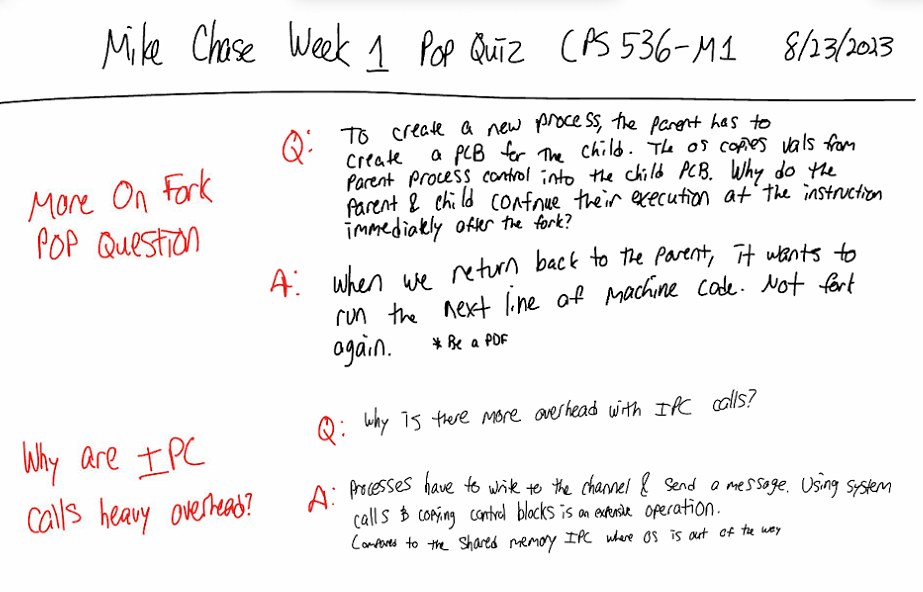 Mike Chase Week 1 Pop Quiz CPS 536-M1 8/23/2023
More On Fork
POP QUESTION
Q: To create a new process, the parent has to
create a PCB for the child. The OS copies vals from
parent process control into the child PCB. Why do the
parent & child continue their execution at the instruction
immediatly after the fork?
A: When we return back to the parent, it wants to
run the next line of machine code. Not fork
again. * Be a PDF
Why are IPC
calls heavy overhead?
Q: Why is there more overhead with IPC calls?
A: Processes have to write to the channel & send a message. Using system
calls & copying control blocks is an expensive operation.
Compares to the shared memory IPC where OS is out of the way